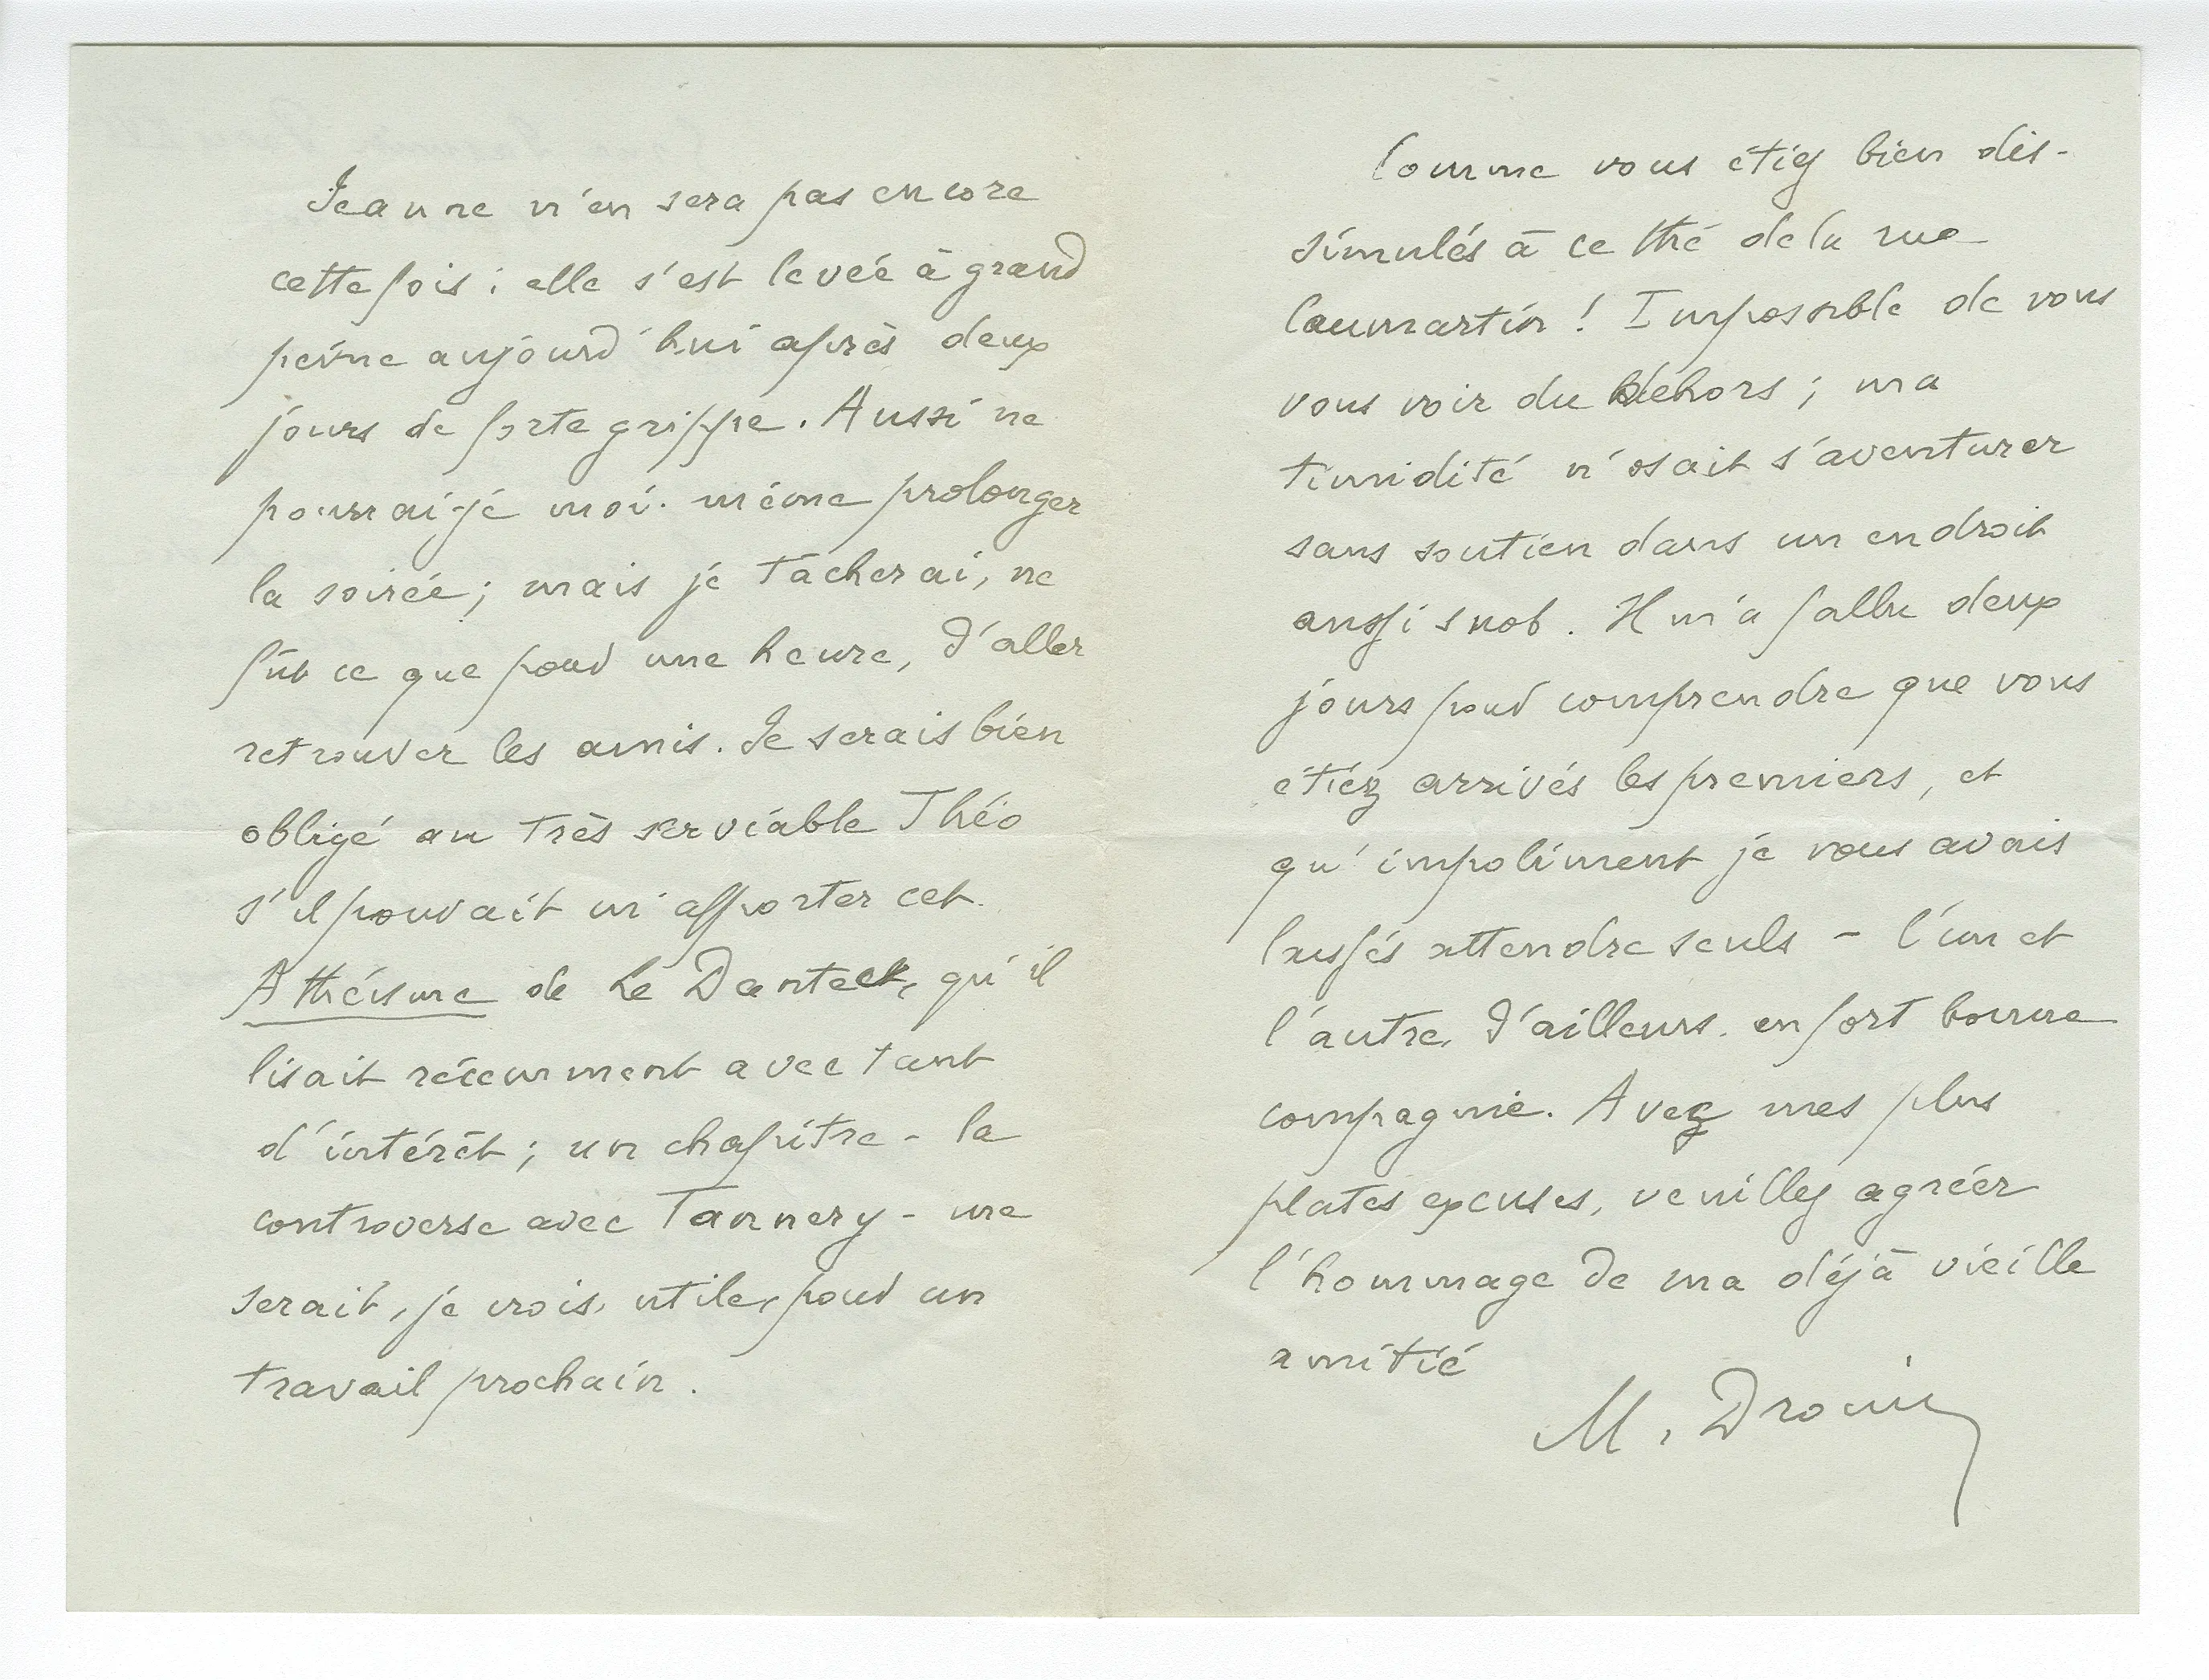 Jeanne n'en sera pas encore
cette fois : elle s'est levée à grand
peine aujourd'hui après deux
jours de forte grippe. Aussi ne
pourrai-je moi-même prolonger
la soirée ; mais je tâcherai, ne
fût ce que pour une heure, d'aller
retrouver les amis. Je serais bien
obligé au très serviable Théo
s'il pouvait m'apporter cet
Athéisme de Le Dantec, qu'il
lisait récemment avec tant
d'intérêt ; un chapitre - la
controverse avec Tannery - me
serait, je crois, utile, pour un
travail prochain.
Comme vous étiez bien dis-
simulés à ce thé de la rue
Caumartin ! Impossible de vous
vous voir du dehors ; ma
timidité n'osait s'aventurer
sans soutien dans un endroit
aussi snob. Il m'a fallu deux
jours pour comprendre que vous
étiez arrivés les premiers, et
qu'impoliment je vous avais
laissés attendre seuls - l'un et
l'autre, d'ailleurs, en fort bonne
compagnie. Avec mes plus
plates excuses, veuillez agréer
l'hommage de ma déjà vieille
amitié
M. Drouin